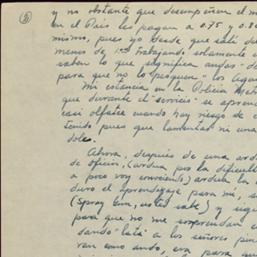 y no obstante que desempeñen el m
en el País les pagan a 0.75 y 0.80
mismo, pues yo desde que salí de
menos de trabajando solamente
saben lo que significa andar "de
para que no lo "pesquen" los Agen
Mi estancia en la Policía Met
que durante el "servicio" se apren
casi olfatea cuando hay riesgo de c
tenido pues que lamentar ni una
dole.
Ahora, después de una ard
de oficios, (ardua por la dificulta
a poco voy conociendo) ardua la
duro el aprendizaje para mi, s
(Spray Gun, usted sabe) y sigu
para que no me sorprendan e
dando "lata" a los señores pin
van como ando, era para qu